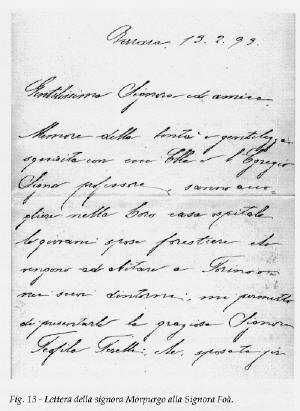 13. 2. 99.
Gentilissima Signora ed amica.
Memore della bontà e gentilezza
squisita con cui Ella e l'Egregio
Signor professore, sanno acco
gliere nella loro casa ospitale
le giovani spose forestiere che
vengono ad abitare a Torino o
nei suoi dintorni, mi permetto
di presentarle la graziosa Signora
che, sposata già
Fig. 13 - Lettera della signora Morpurgo alla Signora Foà.